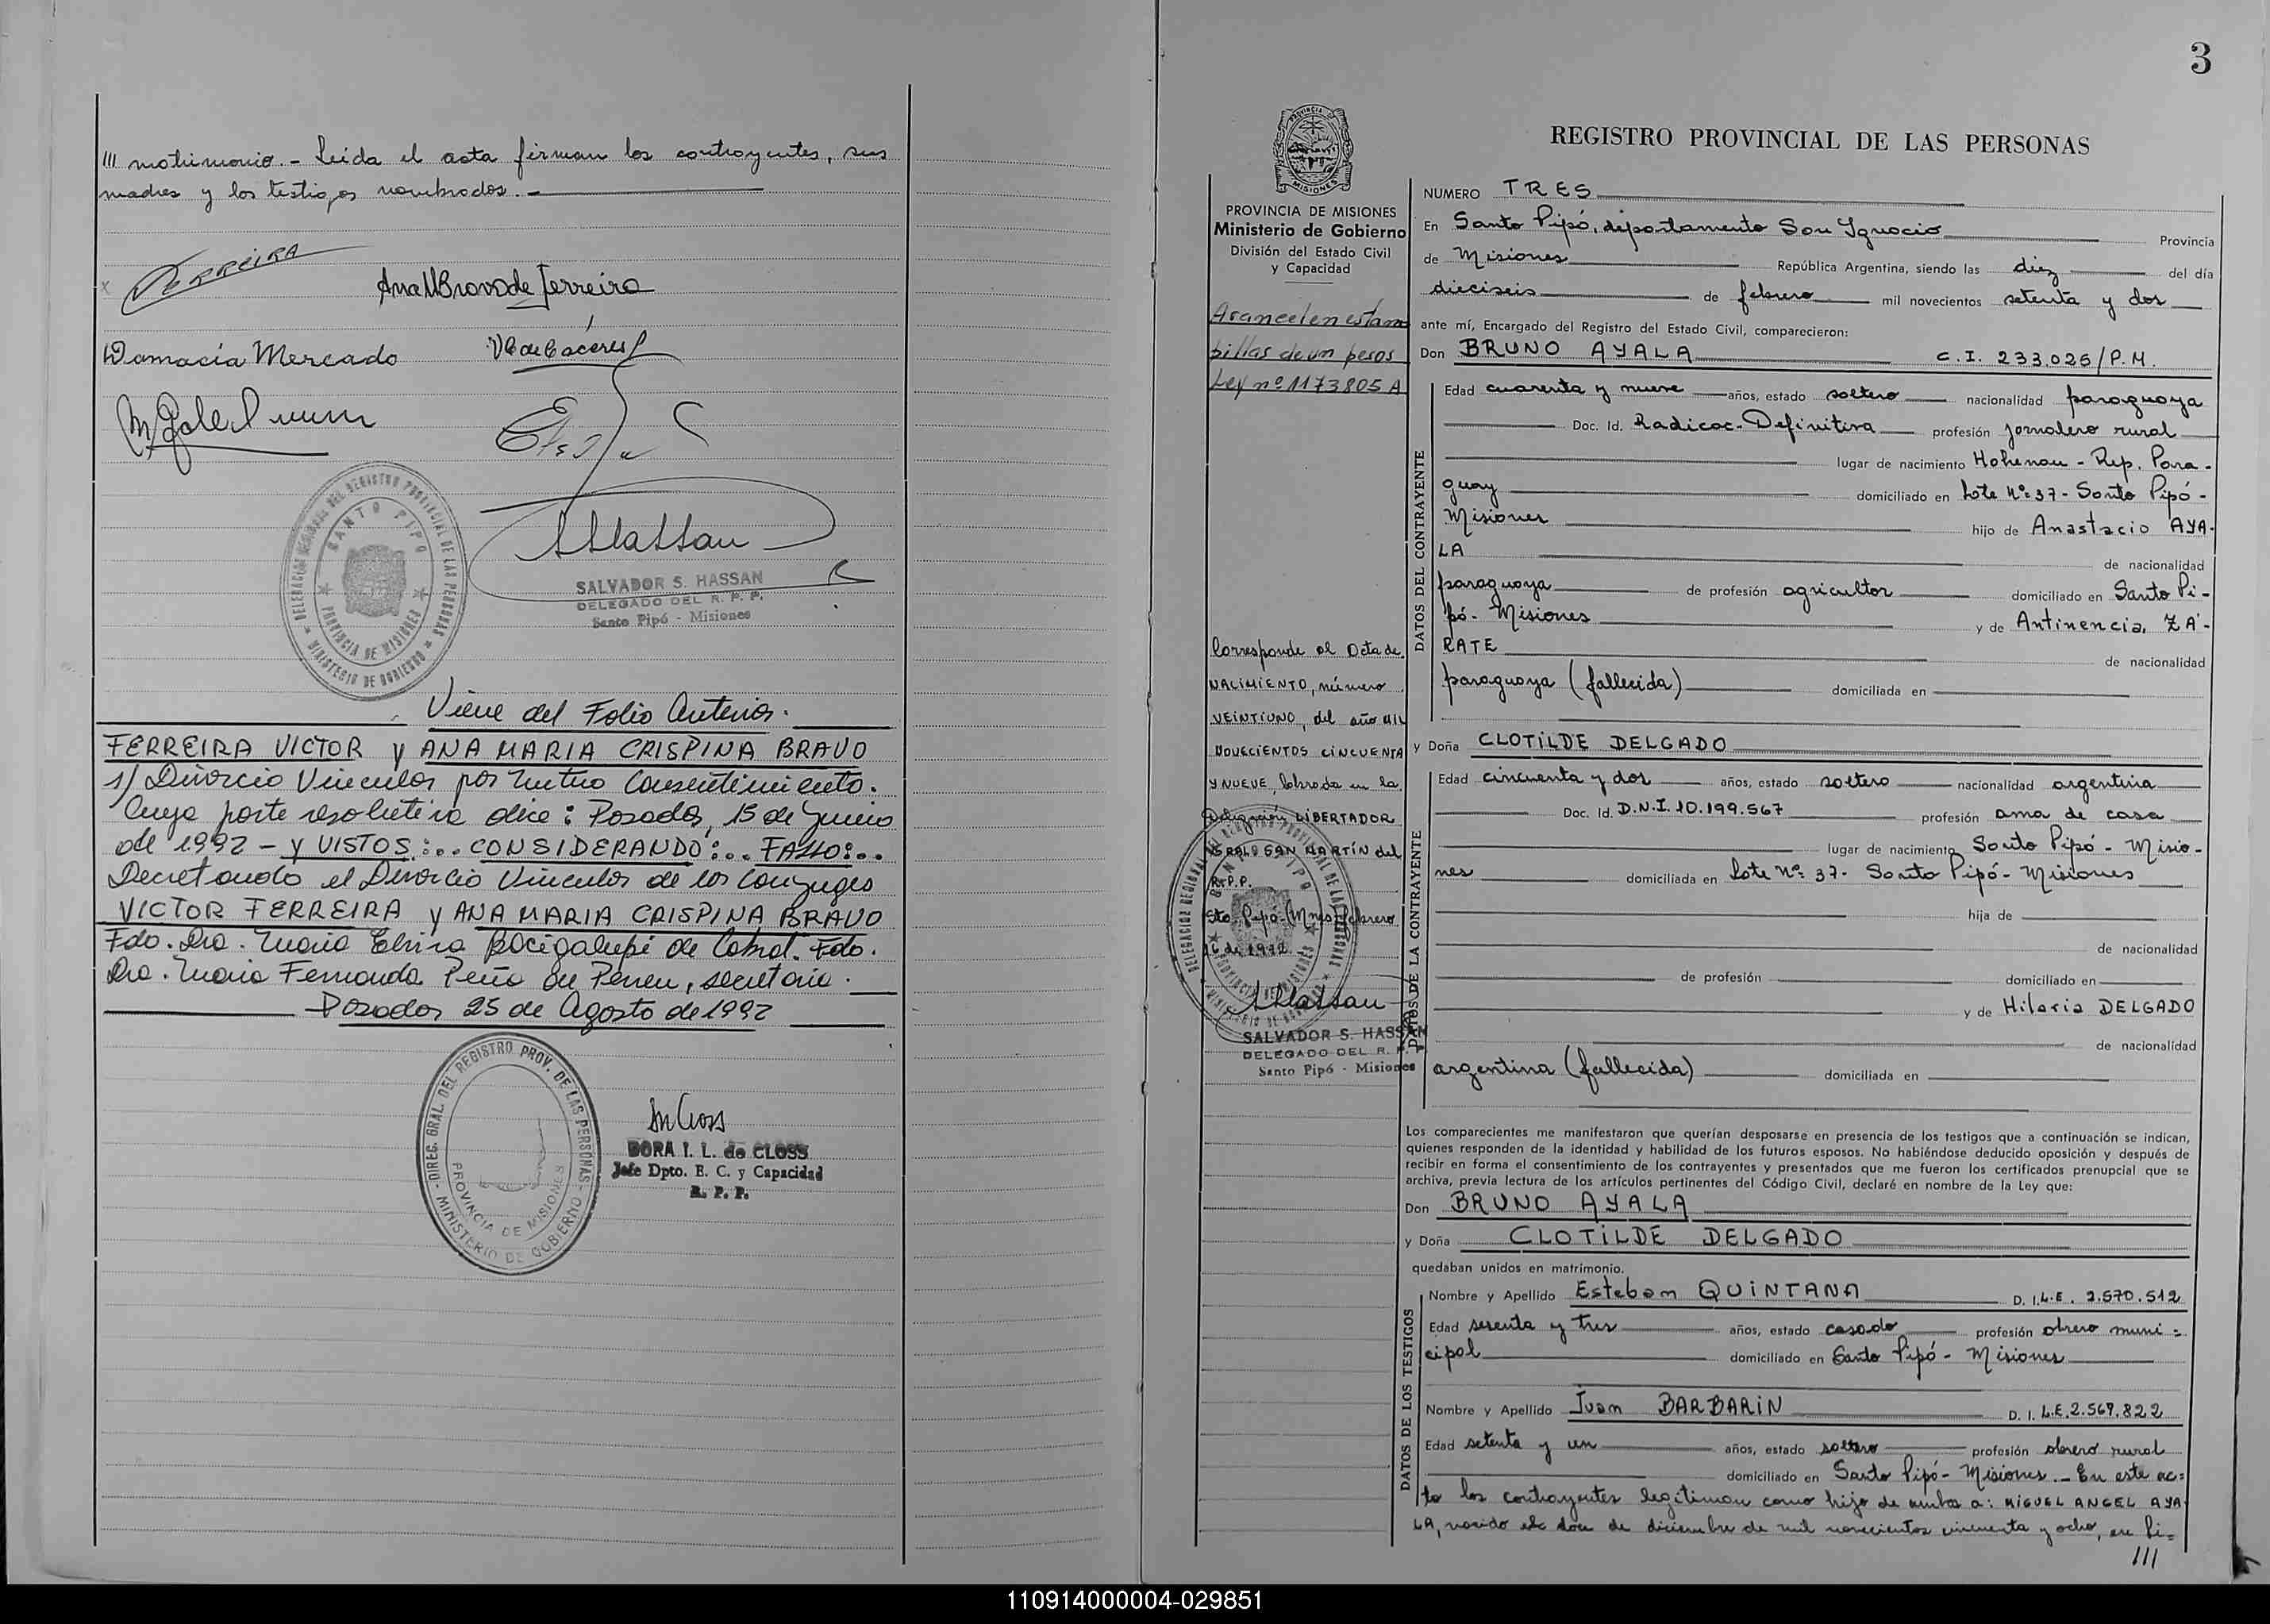 /// matrimonio.- Leída el acta firman los contrayentes, sus
madres y los testigos nombrados.-
FERREIRA
Ana M Bravo de Ferreira
Damacia Mercado
V G de Cáceres
DELEGACION REGIONAL DEL REGISTRO PROVINCIAL DE LAS PERSONAS
SANTO PIPO
PROVINCIA DE MISIONES
MINISTERIO DE GOBIERNO
SHassan
SALVADOR S. HASSAN
DELEGADO DEL R. P. P.
Santo Pipó - Misiones
Viene del Folio Anterior.
FERREIRA VICTOR y ANA MARIA CRISPINA BRAVO
s/ Divorcio Vincular por Mutuo Consentimiento.
Cuya parte resolutiva dice: Posadas, 15 de Junio
de 1992 - Y VISTOS:.. CONSIDERANDO:.. FALLO:..
Decretando el Divorcio Vincular de los Conyuges
VICTOR FERREIRA y ANA MARIA CRISPINA BRAVO
Fdo. Dra. Maria Elvira Bacigalupi de Cabral. Fdo.
Dra. Maria Fernanda Peña de Perrey, secretaria.
Posadas 25 de Agosto de 1992
DIREC. GRAL. DEL REGISTRO PROV. DE LAS PERSONAS
PROVINCIA DE MISIONES
MINISTERIO DE GOBIERNO
DORA I. L. de CLOSS
Jefe Dpto. E. C. y Capacidad
R. P. P.
3
PROVINCIA
MISIONES
REGISTRO PROVINCIAL DE LAS PERSONAS
PROVINCIA DE MISIONES
Ministerio de Gobierno
División del Estado Civil
y Capacidad
Arancel en estam
pillas de un pesos
Ley nº 1173805 A
Corresponde al Acta de
NACIMIENTO, número
VEINTIUNO, del año MIL
NOVECIENTOS CINCUENTA
Y NUEVE labrada en la
Delegación LIBERTADOR
GRAL. SAN MARTÍN del
R.P.P.
Sto. Pipó (Mnes) febrero
16 de 1972.
DELEGACION REGIONAL DEL REGISTRO PROVINCIAL DE LAS PERSONAS
SANTO PIPO
PROVINCIA DE MISIONES
MINISTERIO DE GOBIERNO
SHassan
SALVADOR S. HASSAN
DELEGADO DEL R. P. P.
Santo Pipó - Misiones
NUMERO TRES
En Santo Pipó, departamento San Ignacio Provincia
de Misiones República Argentina, siendo las diez del día
dieciseis de febrero mil novecientos setenta y dos
ante mí, Encargado del Registro del Estado Civil, comparecieron:
Don BRUNO AYALA C.I. 233.026/P.M.
DATOS DEL CONTRAYENTE
Edad cuarenta y nueve años, estado soltero nacionalidad paraguaya
Doc. Id. Radicac. Definitiva profesión jornalero rural
lugar de nacimiento Hohenau - Rep. Para-
guay domiciliado en Lote Nº: 37 - Santo Pipó -
Misiones hijo de Anastacio AYA-
LA de nacionalidad
paraguaya de profesión agricultor domiciliado en Santo Pi-
pó - Misiones y de Antinencia ZÁ-
RATE de nacionalidad
paraguaya (fallecida) domiciliada en
y Doña CLOTILDE DELGADO
DATOS DE LA CONTRAYENTE
Edad cincuenta y dos años, estado soltera nacionalidad argentina
Doc. Id. D.N.I. 10.199.567 profesión ama de casa
lugar de nacimiento Santo Pipó - Misio-
nes domiciliada en Lote Nº: 37 - Santo Pipó - Misiones
hija de
de nacionalidad
de profesión domiciliado en
y de Hilaria DELGADO
de nacionalidad
argentina (fallecida) domiciliada en
Los comparecientes me manifestaron que querían desposarse en presencia de los testigos que a continuación se indican,
quienes responden de la identidad y habilidad de los futuros esposos. No habiéndose deducido oposición y después de
recibir en forma el consentimiento de los contrayentes y presentados que me fueron los certificados prenupcial que se
archiva, previa lectura de los artículos pertinentes del Código Civil, declaré en nombre de la Ley que:
Don BRUNO AYALA
y Doña CLOTILDE DELGADO
quedaban unidos en matrimonio.
DATOS DE LOS TESTIGOS
Nombre y Apellido Esteban QUINTANA D. I. L.E. 2.570.512
Edad sesenta y tres años, estado casado profesión obrero muni-
cipal domiciliado en Santo Pipó - Misiones
Nombre y Apellido Juan BARBARIN D. I. L.E. 2.569.822
Edad setenta y un años, estado soltero profesión obrero rural
domiciliado en Santo Pipó - Misiones.- En este ac-
to los contrayentes legitiman como hijo de ambos a: MIGUEL ANGEL AYA-
LA, nacido el doce de diciembre de mil novecientos cincuenta y ocho, en Pi-
///
110914000004-029851